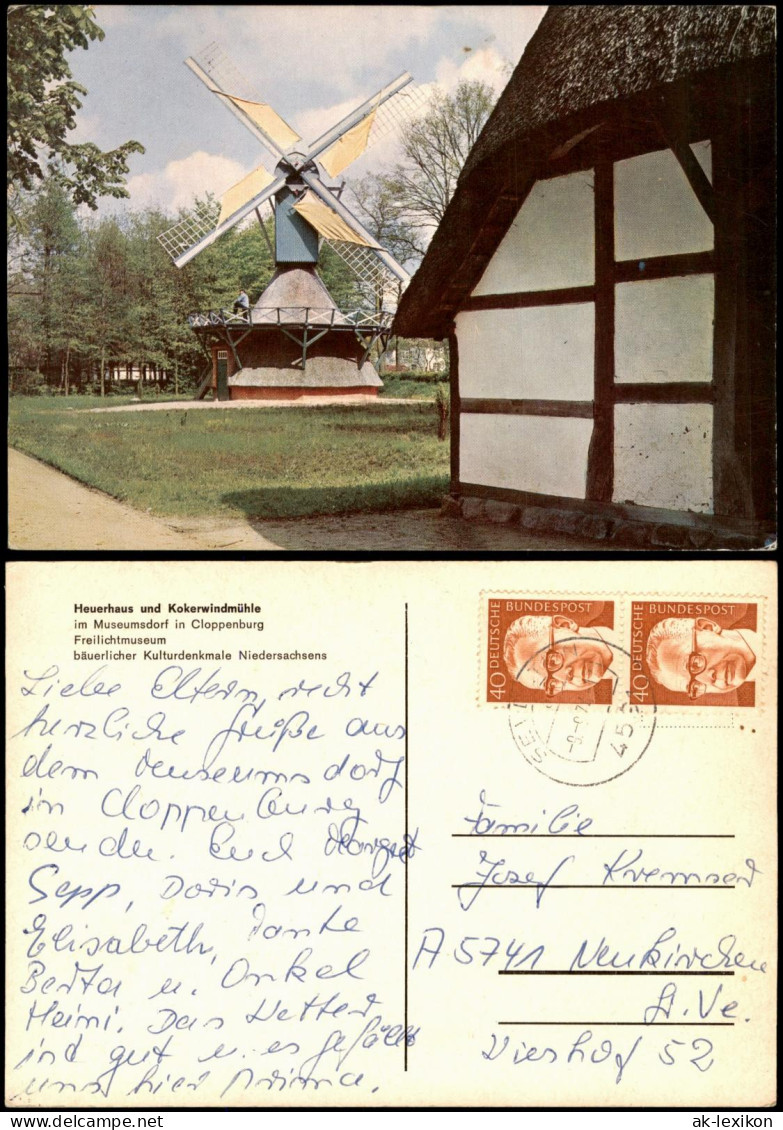 Heuerhaus und Kokerwindmühle
im Museumsdorf in Cloppenburg
Freilichtmuseum
bäuerlicher Kulturdenkmale Niedersachsens
Liebe Eltern, recht
herzliche Grüße aus
dem Museumsdorf
in Cloppenburg
senden. Euch Margret
Sepp, Doris und
Elisabeth, Tante
Berta u. Onkel
Heini. Das Wetter
ist gut u. es gefällt
uns hier prima.
40 DEUTSCHE BUNDESPOST
40 DEUTSCHE BUNDESPOST
Familie
Josef Kremser
A 5741 Neukirchen
Gr. Ve.
Vierhof 52
ak-lexikon